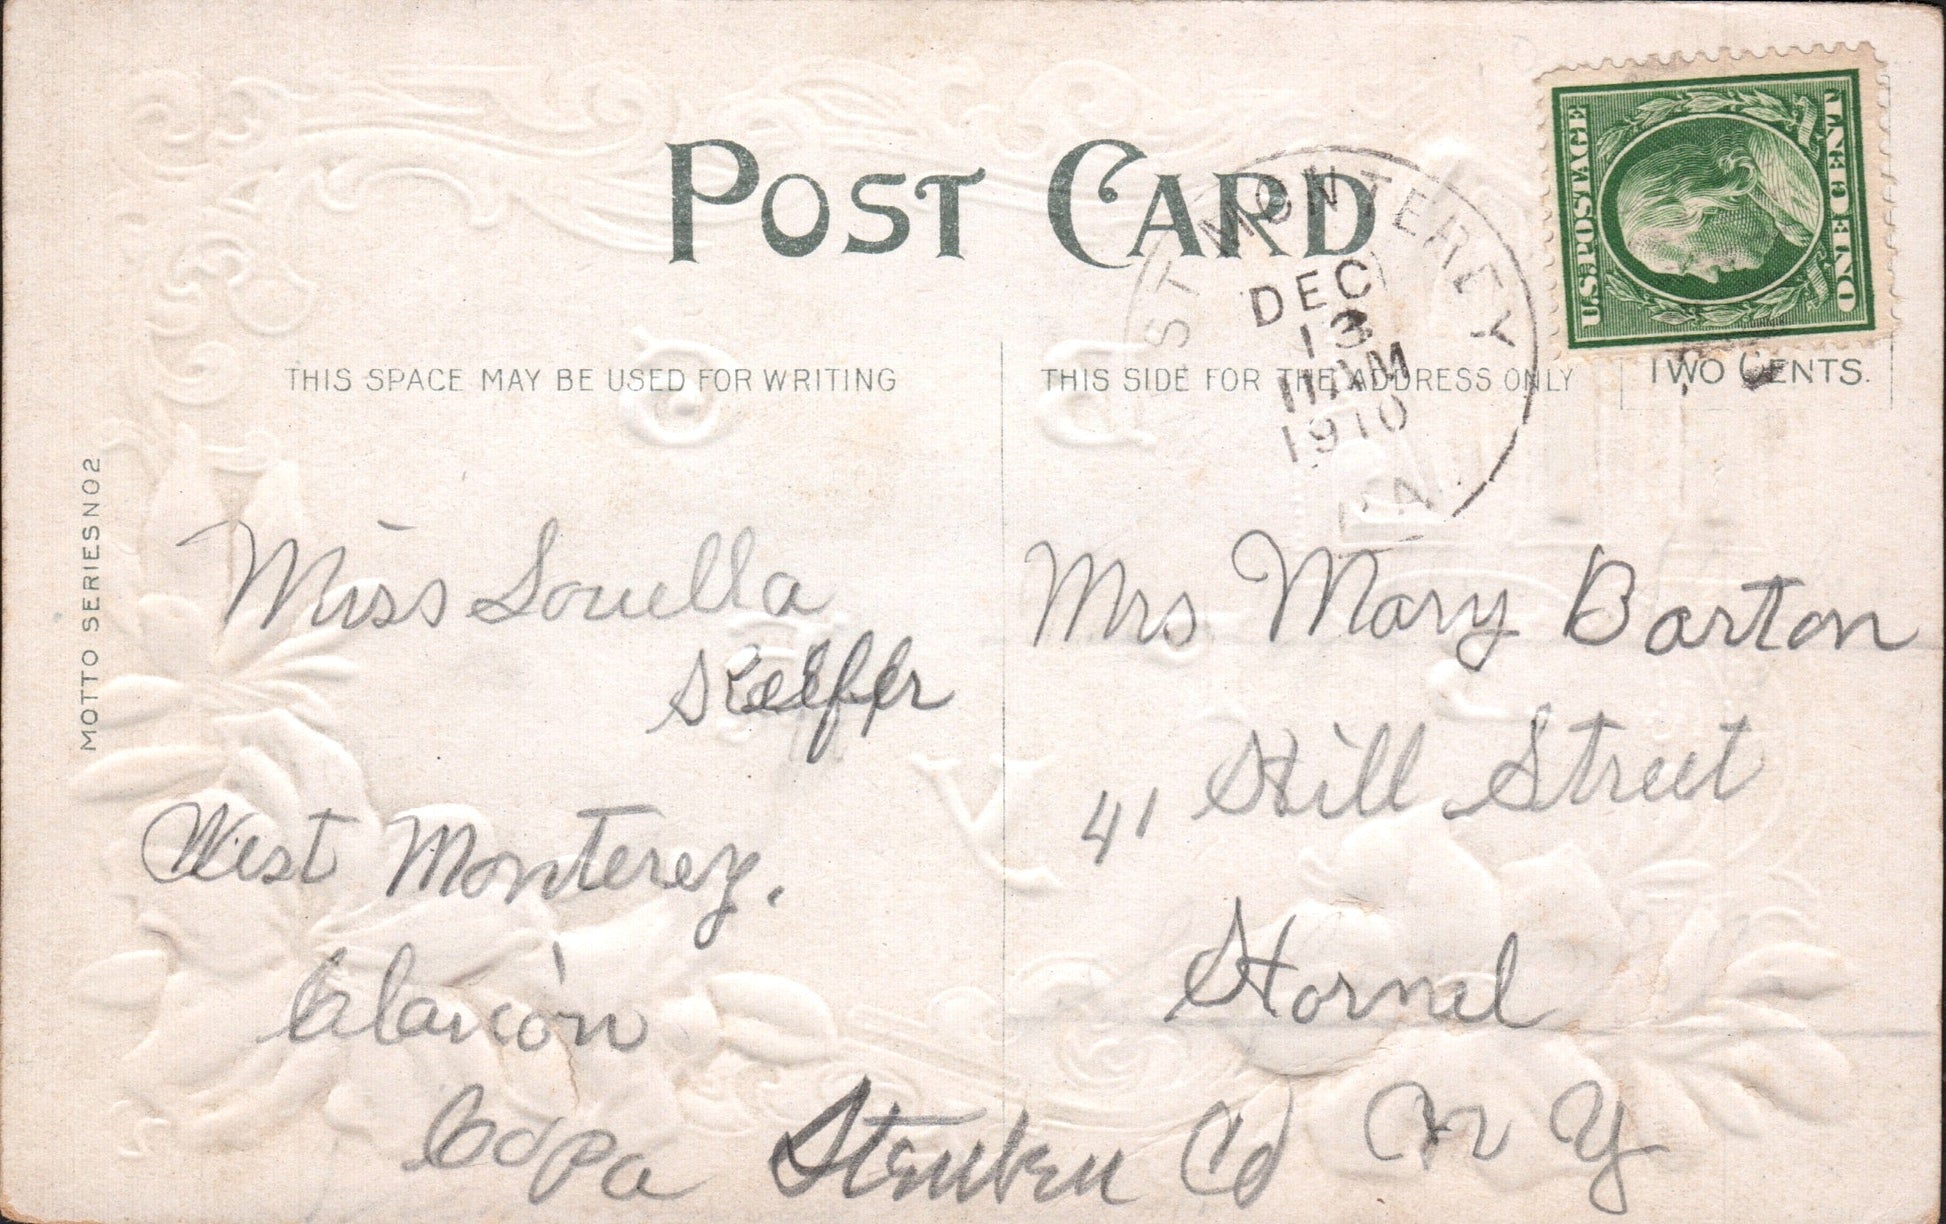 POST CARD
ST MONTEREY
DEC
13
11 AM
1910
PA
U.S. POSTAGE
ONE CENT
THIS SPACE MAY BE USED FOR WRITING
THIS SIDE FOR THE ADDRESS ONLY
TWO CENTS.
MOTTO SERIES NO 2
Miss Louella
West Monterey.
Clarion
Co Pa
Mrs Mary Barton
41 Hill Street
Hornel
Steuben Co N Y